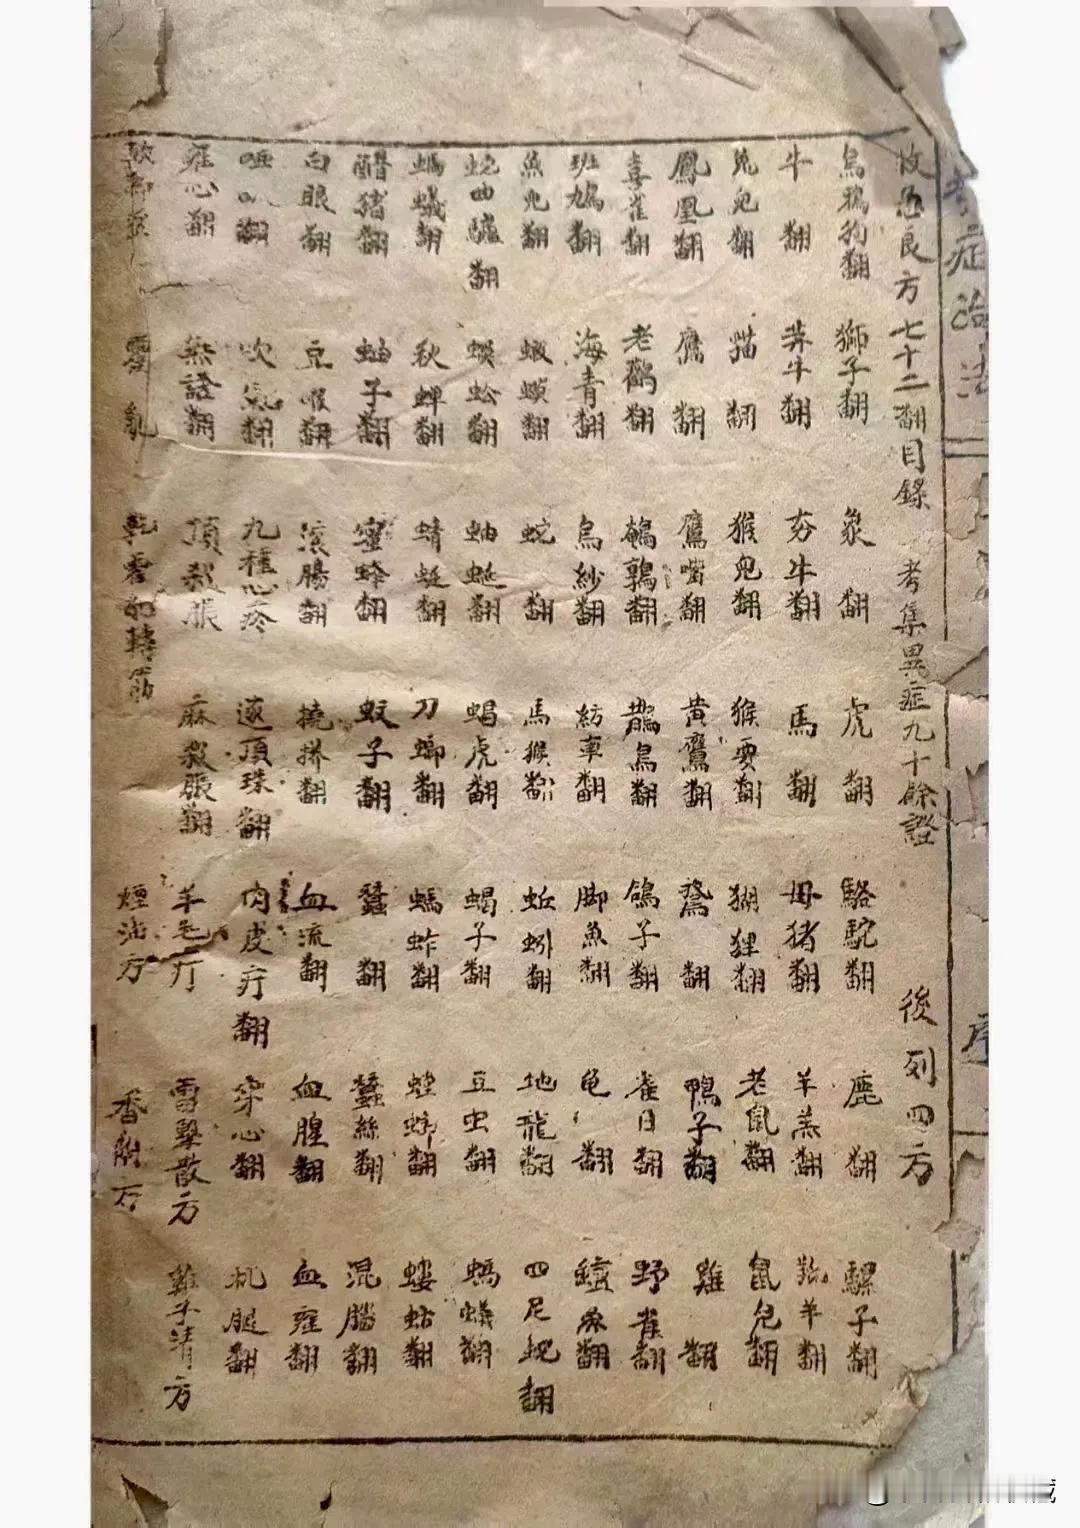 考症治法
序
救急良方七十二翻目錄 考集異症九十餘證 後列四方
烏鴉狗翻 獅子翻 象翻 虎翻 駱駝翻 鹿翻 騾子翻
牛翻 莽牛翻 夯牛翻 馬翻 母猪翻 羊羔翻 羚羊翻
兔兒翻 猫翻 猴兒翻 猴耍翻 狐狸翻 老鼠翻 鼠兒翻
鳳凰翻 鷹翻 鷹嘴翻 黄鷹翻 翻 鴨子翻 雞翻
喜雀翻 老鸛翻 鵪鶉翻 鵲鳥翻 鴿子翻 雀目翻 野雀翻
班鳩翻 海青翻 烏紗翻 紡車翻 脚魚翻 龟翻 鱔魚翻
魚兒翻 蝦蟆翻 蛇翻 馬猴翻 蚯蚓翻 地龍翻 四足蛇翻
蛇曲驢翻 蜈蚣翻 蚰蜒翻 蝎虎翻 蝎子翻 豆虫翻 螞蟻翻
螞蟻翻 秋蟬翻 蜻蜓翻 刀螂翻 螞蚱翻 螳螂翻 螻蛄翻
醋猪翻 蚰子翻 蜜蜂翻 蚊子翻 蠶翻 蠶絲翻 混腦翻
白眼翻 豆喉翻 滚腸翻 撓擠翻 血流翻 血腥翻 血瘂翻
啞叭翻 吹氣翻 九種心疼 逐頂珠翻 肉皮疔翻 穿心翻 机腿翻
瘂心翻 無證翻 頂殺脹 麻殺脹翻 羊毛疔 雷擊散方 雞子清方
霍亂 乾霍乱轉筋 煙油方 香附方